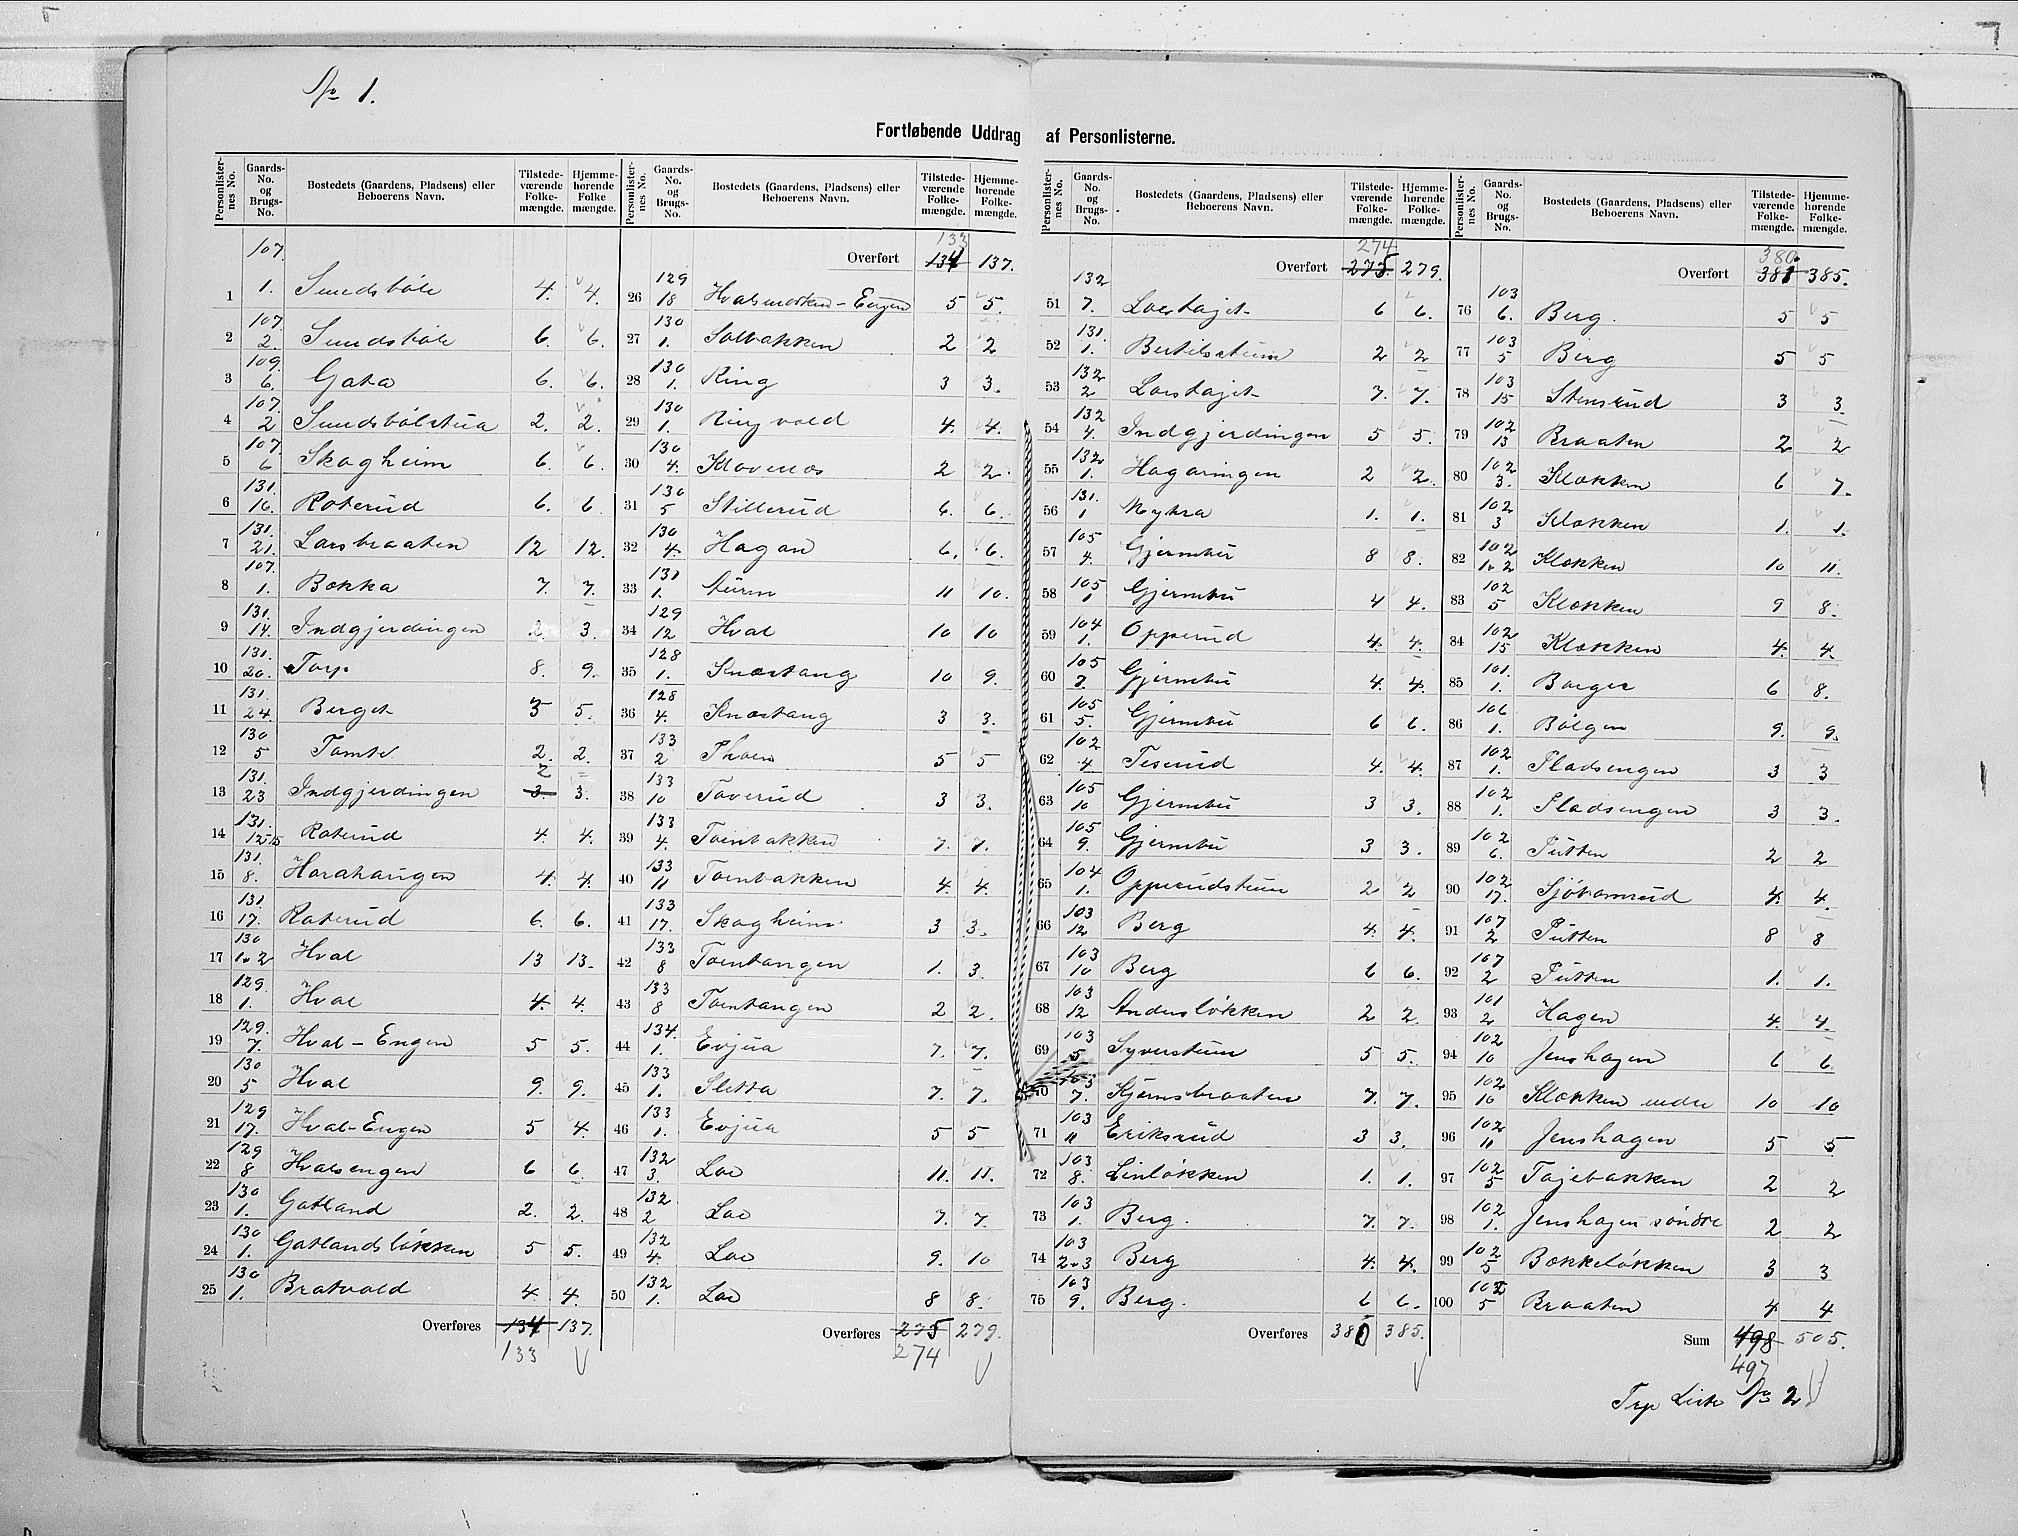 No 1.
Fortløbende Uddrag af Personlisterne.
Personlisternes No. Gaards-No. og Brugs-No. Bostedets (Gaardens, Pladsens) eller Beboerens Navn. Tilstedeværende Folkemængde. Hjemmehørende Folkemængde.
1 107. 1. Sundsböle 4. 4.
2 107. 2. Sundsböle 6. 6.
3 109. 6. Gata 6. 6.
4 107. 2 Sundsbölstua 2. 2.
5 107. 6 Skagheim 6. 6.
6 131. 16. Roterud 6. 6.
7 131. 21. Larsbraaten 12 12.
8 107. 1. Bakka 7. 7.
9 131. 14. Indgjerdingen 3.
10 131. 20. Torp 8. 9.
11 131. 24 Berget 5 5.
12 130 5 Tomte 2. 2.
13 131. 23 Indgjerdingen 3. 2 3.
14 131. 12 15 Roterud 4. 4.
15 131. 8. Harahaugen 4. 4.
16 131. 17. Roterud 6. 6.
17 130 1 2 Hval 13 13.
18 129. 1. Hval 4. 4.
19 129. 7. Hval-Engen 5 5.
20 130 5 Hval 9. 9.
21 129 17. Hval-Engen 5 4.
22 129 8 Hvalsengen 6 6.
23 130 1. Gatland 2. 2.
24 130 1. Gatlandsløkken 5 5.
25 130 1. Bratvold 4 4.
Overføres 134 137.
133
Overført 134 133 137.
26 129 18 Hvalsmarken-Engen 5 5.
27 130 1. Solbakken 2 2
28 130 1. Ring 3 3.
29 130 1. Ringvold 4. 4.
30 130 4. Klovenes 2 2.
31 130 5 Stillerud 6. 6.
32 130 4. Hagan 6. 6.
33 131 1. 11 10.
34 129 12 Hval 10 10
35 128 1. Knæstang 10 9.
36 128 4. Knæstang 3 3.
37 133 2 Thoen 5 5
38 133 10 Toverud 3 3.
39 133 4. Toenbakken 7. 7.
40 133 11 Toenbakken 4. 4.
41 133 17. Skagheim 3 3.
42 133 8 Toentangen 1. 3.
43 133 8 Toentangen 2 2.
44 134. 1. Evjua 7. 7.
45 133 1. Sletta 7. 7.
46 133 1. Evjua 5 5
47 132 3. Loe 11. 11.
48 132. 2 Loe 7. 7.
49 132 4. Loe 9. 10
50 132 1. Loe 8 8.
Overføres 275 279.
274
Overført 275. 274 279.
51 132 7. Loeshajet 6 6.
52 131. 1. Bertilsstuen 2 2
53 132 2 Loeshajet 7. 7.
54 132 4. Indgjerdingen 5 5.
55 132 1. Hagaringen 2 2.
56 131. 1 Myhra 1. 1.
57 105 4. Gjermbu 8 8.
58 105 1 Gjermbu 4 4.
59 104 1. Opperud 4. 4.
60 105 7. Gjermbu 4. 4.
61 105 5. Gjermbu 6 6.
62 102 4 Teserud 4. 4.
63 105 10 Gjermbu 3 3.
64 105 9. Gjermbu 3 3.
65 104 1. Opperudstuen 2 2
66 103 12 Berg 4. 4.
67 103 10 Berg 6 6.
68 103 12 Andersløkken 2 2.
69 103 5 Syverstuen 5 5.
70 103 7. Kjernsbraaten 7. 7.
71 103 11 Eriksrud 3 3.
72 103 8. Linløkken 1. 1.
73 103 1. Berg. 7. 7.
74 103 2 3 Berg 4. 4.
75 103 9. Berg. 6 6.
Overføres 380 385.
Overført 381 380. 385.
76 103 6. Berg. 5 5
77 103 5 Berg 5 5
78 103 15 Stensrud 3 3
79 102 13 Braaten 2 2
80 102 3. Klækken 6 7.
81 102 3 Klækken 1. 1.
82 102 1 2 Klækken 10 11.
83 102 5 Klækken 9 8.
84 102 15 Klækken 4. 4.
85 101. 1. Borger 6 8.
86 106 1. Bölgen 9. 9.
87 102 1. Pladsengen 3 3
88 102 1. Pladsengen 3 3.
89 102 6. Putten 2 2
90 102 17. Sjövannrud 4. 4.
91 107 2 Putten 8 8
92 107 2 Putten 1. 1.
93 101 2 Hagen 4. 4.
94 102 10 Jenshagen 6 6
95 102 10 Klækken nedre 10 10
96 102 11 Jenshagen 5 5
97 102 5 Tajebakken 2 2
98 102 1. Jenshagen søndre 2 2
99 102 5 Bækkeløkken 3 3
100 102 5 Braaten 4 4
Sum 498 505.
497
Liste No 2